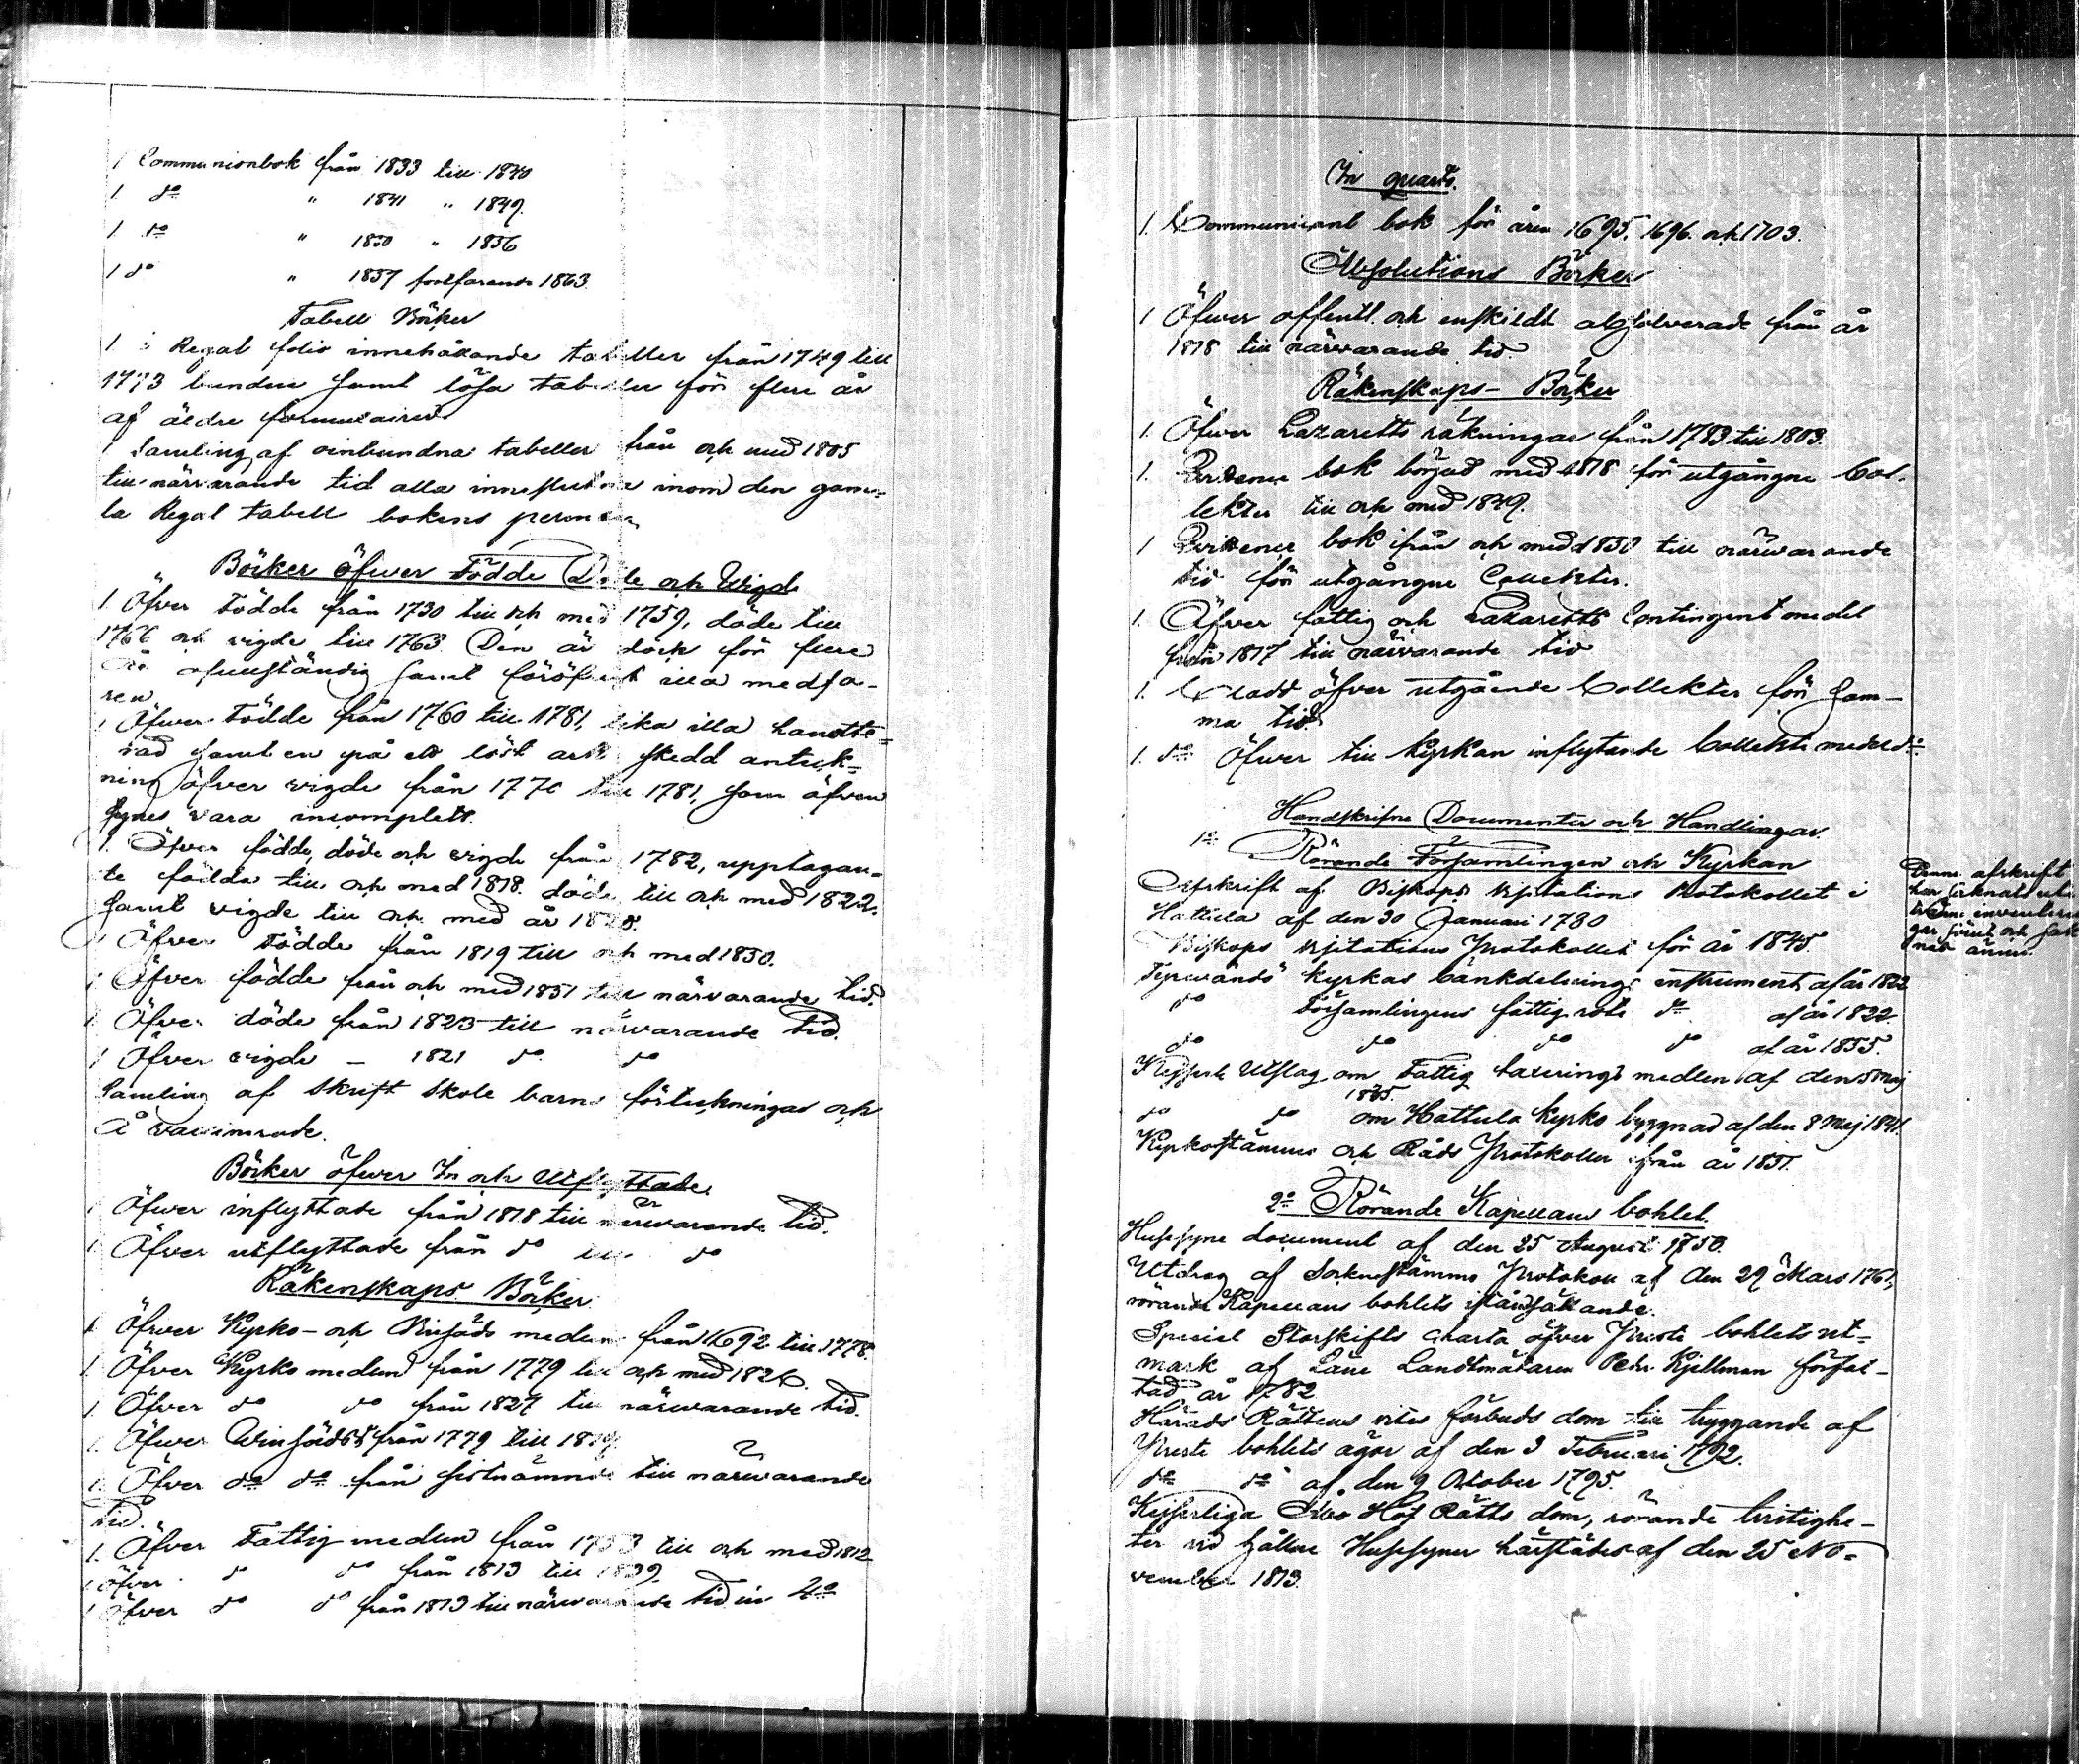 1 Communionbok från 1833 till 1840
1 do " 1841 " 1849.
1 do " 1850 " 1856
1 do " 1857 fortfarande 1863.
Tabell Böcker
1 i Regal folio innehållande tabeller från 1749 till
1773 bundne samt lösa tabeller för flere år
af äldre formulairer
1 Samling af oinbundna tabeller från och med 1805
till närvarande tid alla inneslutna inom den gam=
la Regal tabell bokens
Böcker öfwer Födde Döde och Wigde
1. Öfver Födde från 1730 till och med 1759, döde till
1766 och vigde till 1763. Den är dock för flere
år ofullständig samt föröfrigt illa medfa-
ren
1 Öfwer Födde från 1760 till 1781, lika illa handtte=
rad samt en på ett löst ark skedd anteck=
ning öfver vigde från 1770 till 1781, som äfven
synes vara incomplett.
1. Öfver födde, döde och vigde från 1782, upptagan=
de födda till och med 1818. döde till och med 1822.
samt vigde till och med år 1820.
1 Öfver Födde från 1819 till och med 1850.
1 Öfver födde från och med 1851 till närvarande tid.
1 Öfver döde från 1823 till närvarande tid.
1 Öfver vigde – 1821 do do
Samling af Skrift Skole barns förteckningar och
Å vaccinerade.
Böcker öfwer In och Utflyttade.
1 Öfwer inflyttade från 1818 till närwarande tid.
1 Öfver utflyttade från do till do
Räkenskaps Böcker
1 Öfwer Kyrko- och Winsäds medlen från 1692 till 1778.
1 Öfver Kyrko medlen från 1779 till och med 1826.
1. Öfver do do från 1827 till närwarande tid.
1. Öfwer Winsäds från 1779 till
1. Öfver do do från sistnämnde till närwarande
tid.
1. Öfver Fattig medlen från 1753 till och med 1812
1 öfver do do från 1813 till 1839.
1 öfver do do från 1813 till närwarande tid in 4o
In quarto.
1. Communicant bok för åren 1695. 1696. och 1703.
Absolutions Böcker
1 Öfwer offentl. och enskildt absolverade från år
1818 till närvarande tid.
Räkenskaps- Böcker
1. Öfwer Lazaretts räkningar från 1783 till 1803.
1. Evidence bok börjad med 1818 för utgångne Col-
lekter till och med 1849.
1 Evidence bok ifrån och med 1850 till närwarande
tid för utgångne Collekter.
1. Öfver fattig och Lazaretts Contingent medel
från 1817 till närvarande tid
1. Cladd öfver utgående Collekter för sam-
ma tid.
1. do Öfwer till kyrkan inflytande Collekt medel do
Handskrifne Documenter och Handlingar.
1o Rörande Församlingen och Kyrkan
Afskrift af Biskops Visitations Protokollet i
Hattula af den 30 Januari 1780
Biskops visitations Protokollet för år 1845.
Tyrwändö kyrkas bänkdelnings instrument af år 1822
do Församlingens fattig rote do af år 1822.
do do do do af år 1855.
Kejserl. Utslag om Fattig taxerings medlen af den 5 Maj
1825.
do do om Hattula Kyrko byggnad af den 8 Maj 1841.
Kyrkostämmo och Råds Protokoller från år 1851.
2o Rörande Kapellans bohlet.
Husesyne document af den 25 Augusti 1750.
Utdrag af Sockenstämmo Protokoll af den 29 Mars 1761,
rörande Kapellans bohlets iståndsättande.
Special Storskifts Charta öfver Preste bohlets ut=
mark af Läne Landtmätaren Petr. Kjellman förfat-
tad år 1782
Härads Rättens vites förbuds dom till tryggande af
Preste bohlets ägor af den 3 Februari 1792.
do do af den 9 October 1795.
Kejserliga Åbo Hof Rätts dom, rörande tvistighe-
ter vid hållne Husesyner härstädes af den 25 No-
vember 1813.
Denna afskrift
har saknats uti